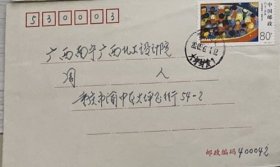 530003
中国邮政
80分
广西南宁广西化工设计院
周 人
重庆市渝中区大坪
54-2
邮政编码 400042